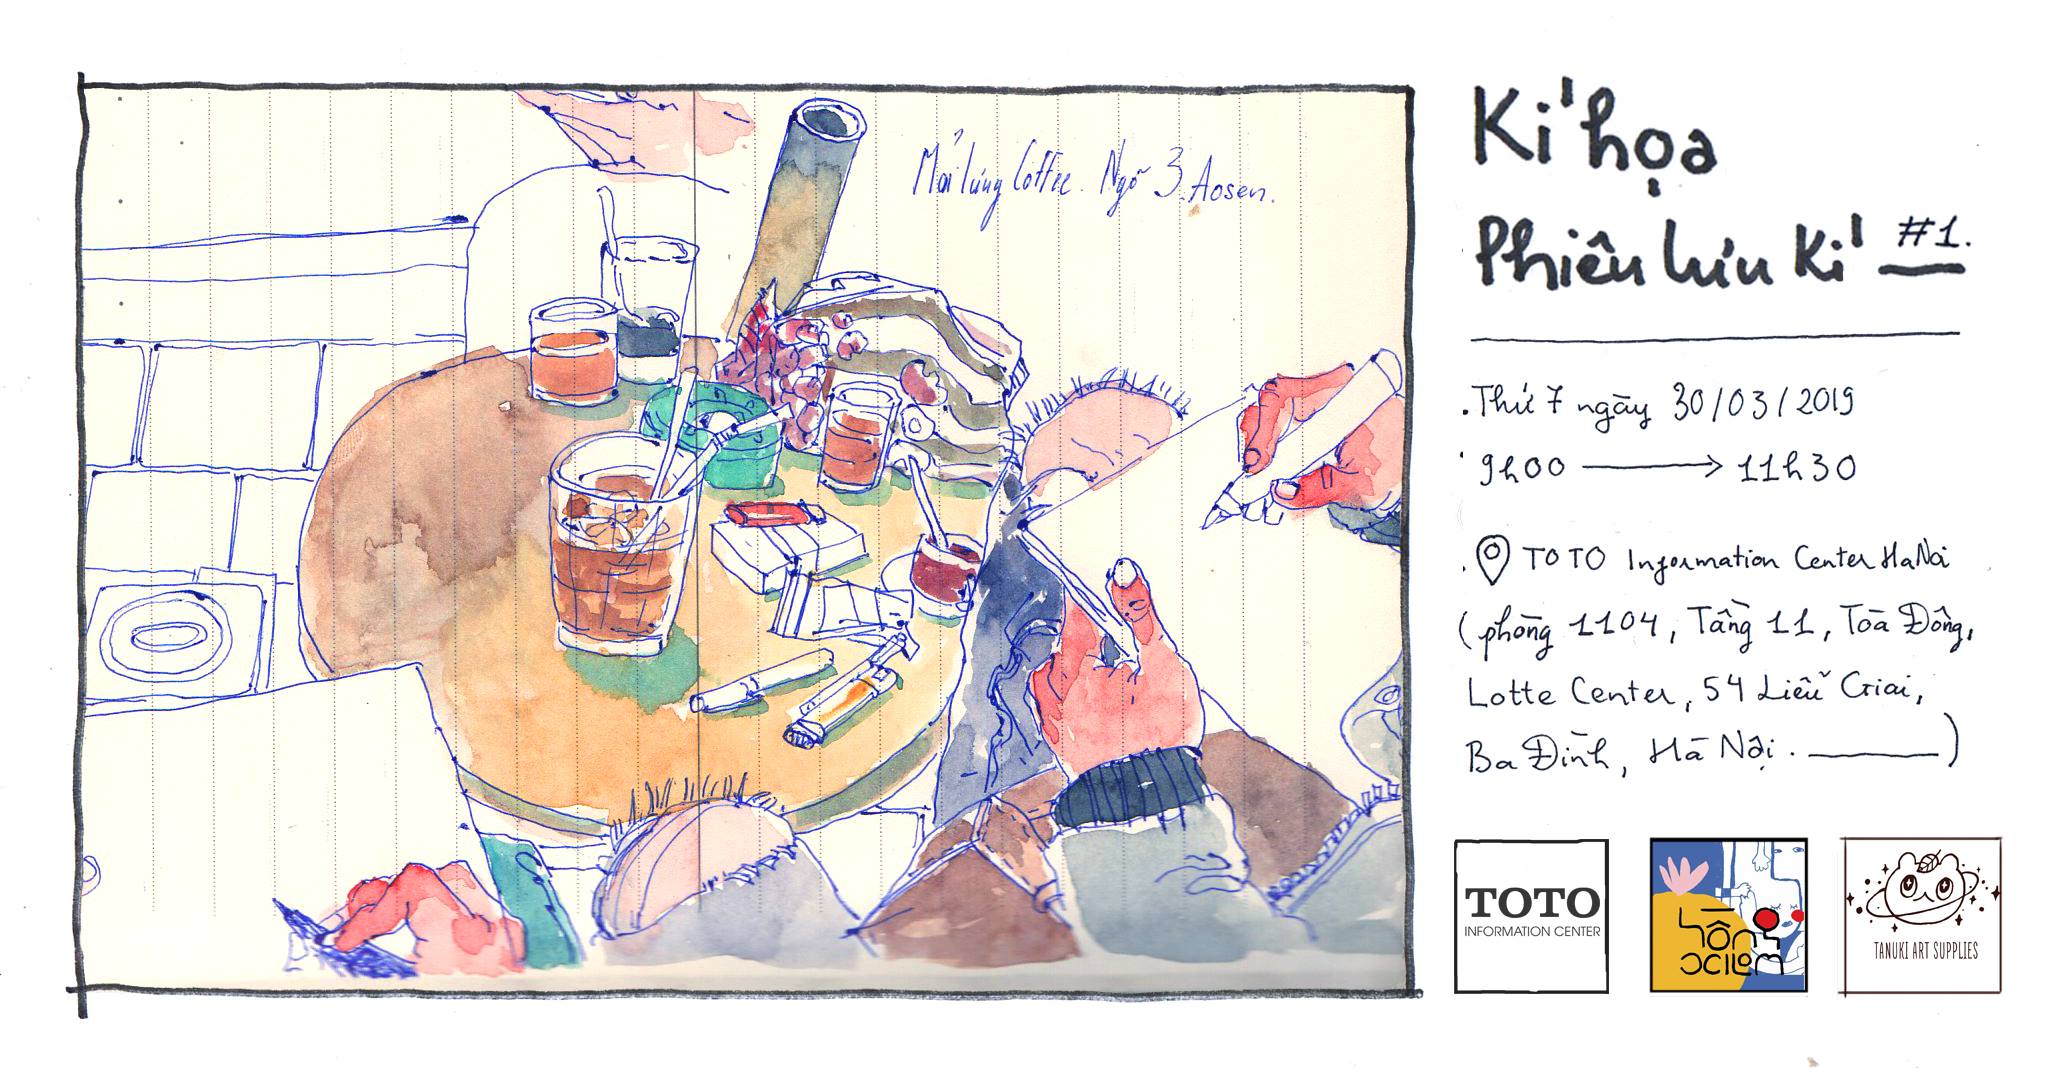 Mỏi lưng Coffee. Ngõ 3 Aosen.
Kí họa
Phiêu lưu Kí #1.
.Thứ 7 ngày 30/03/2019
9h00 → 11h30
TOTO Information Center HaNoi
(phòng 1104, Tầng 11, Tòa Đông,
Lotte Center, 54 Liễu Giai,
Ba Đình, Hà Nội. )
TOTO
INFORMATION CENTER
TANUKI ART SUPPLIES